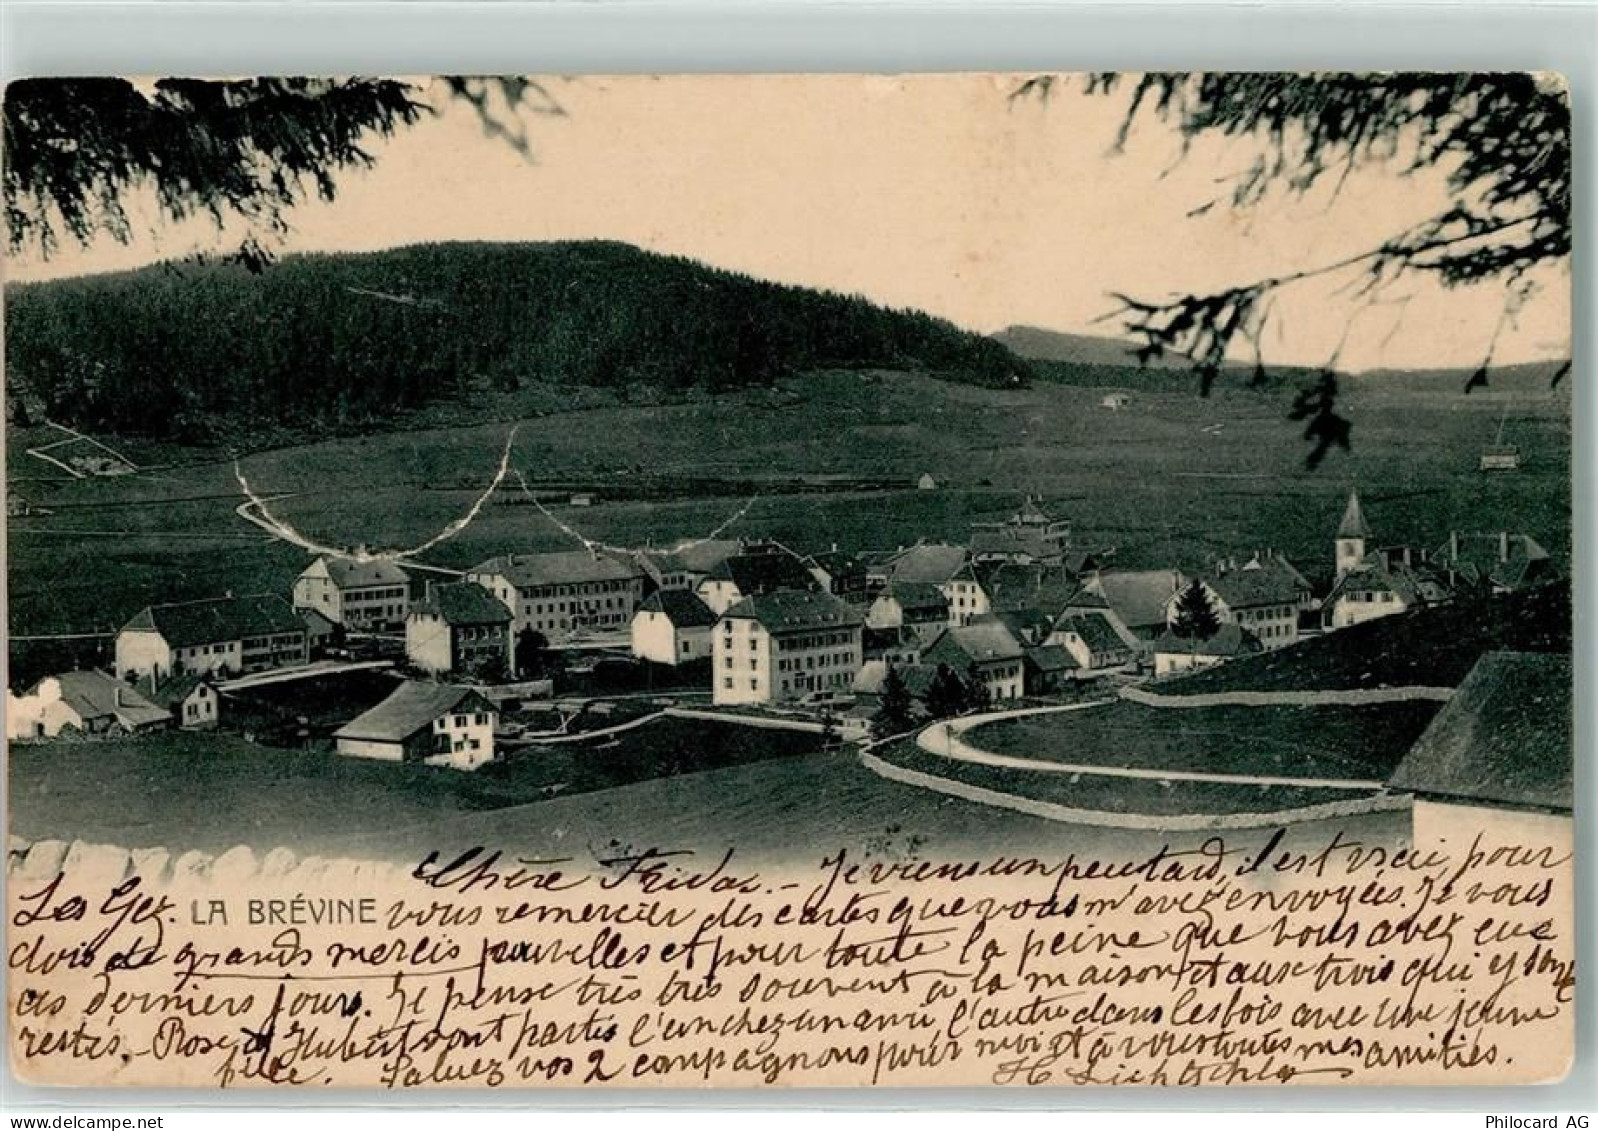 Chère Frida. - Je viens un peu tard, il est vrai, pour
Les Gez. LA BRÉVINE vous remercier des cartes que vous m'avez envoyées. Je vous
dois de grands mercis pour elles et pour toute la peine que vous avez eue
ces derniers jours. Je pense très très souvent à la maison et aux trois qui y sont
restés. - Rose et Hubert sont partis l'un chez un ami, l'autre dans les bois avec une jeune
fille. Saluez vos 2 compagnons pour moi et à vous toutes mes amitiés.
H
Philocard AG
delcampe.net